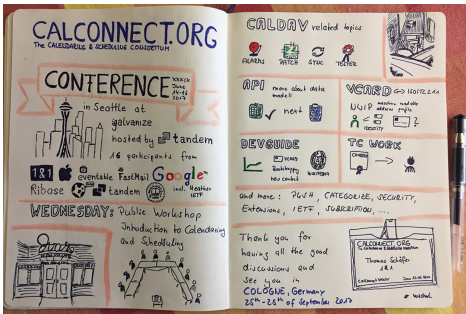 CALCONNECT.ORG
The CALENDARING & SCHEDULING CONSORTIUM
CONFERENCE
XXXIX
June
14-16
2017
in Seattle at
galvanize
hosted by tandem
16 participants from
1&1 eventable FastMail Google
Ribose tandem incl. Heather
IETF
WEDNESDAY: Public Workshop
Introduction to Calendaring
and Scheduling
CALDAV related topics
ALARMS PATCH SYNC TESTER
API more about data
model
next
VCARD
NWIP machine readable
address profile
IDENTITY
DEVGUIDE
VCARD
new content
TC WORK
and more: PUSH, CATEGORIES, SECURITY,
Extensions, IETF, SUBSCRIPTION, ...
Thank you for
having all the good
discussions and
see you in
COLOGNE, Germany
25th-28th of September 2017
CALCONNECT.ORG
The CALENDARING & SCHEDULING CONSORTIUM
Thomas Schäfer
1&1